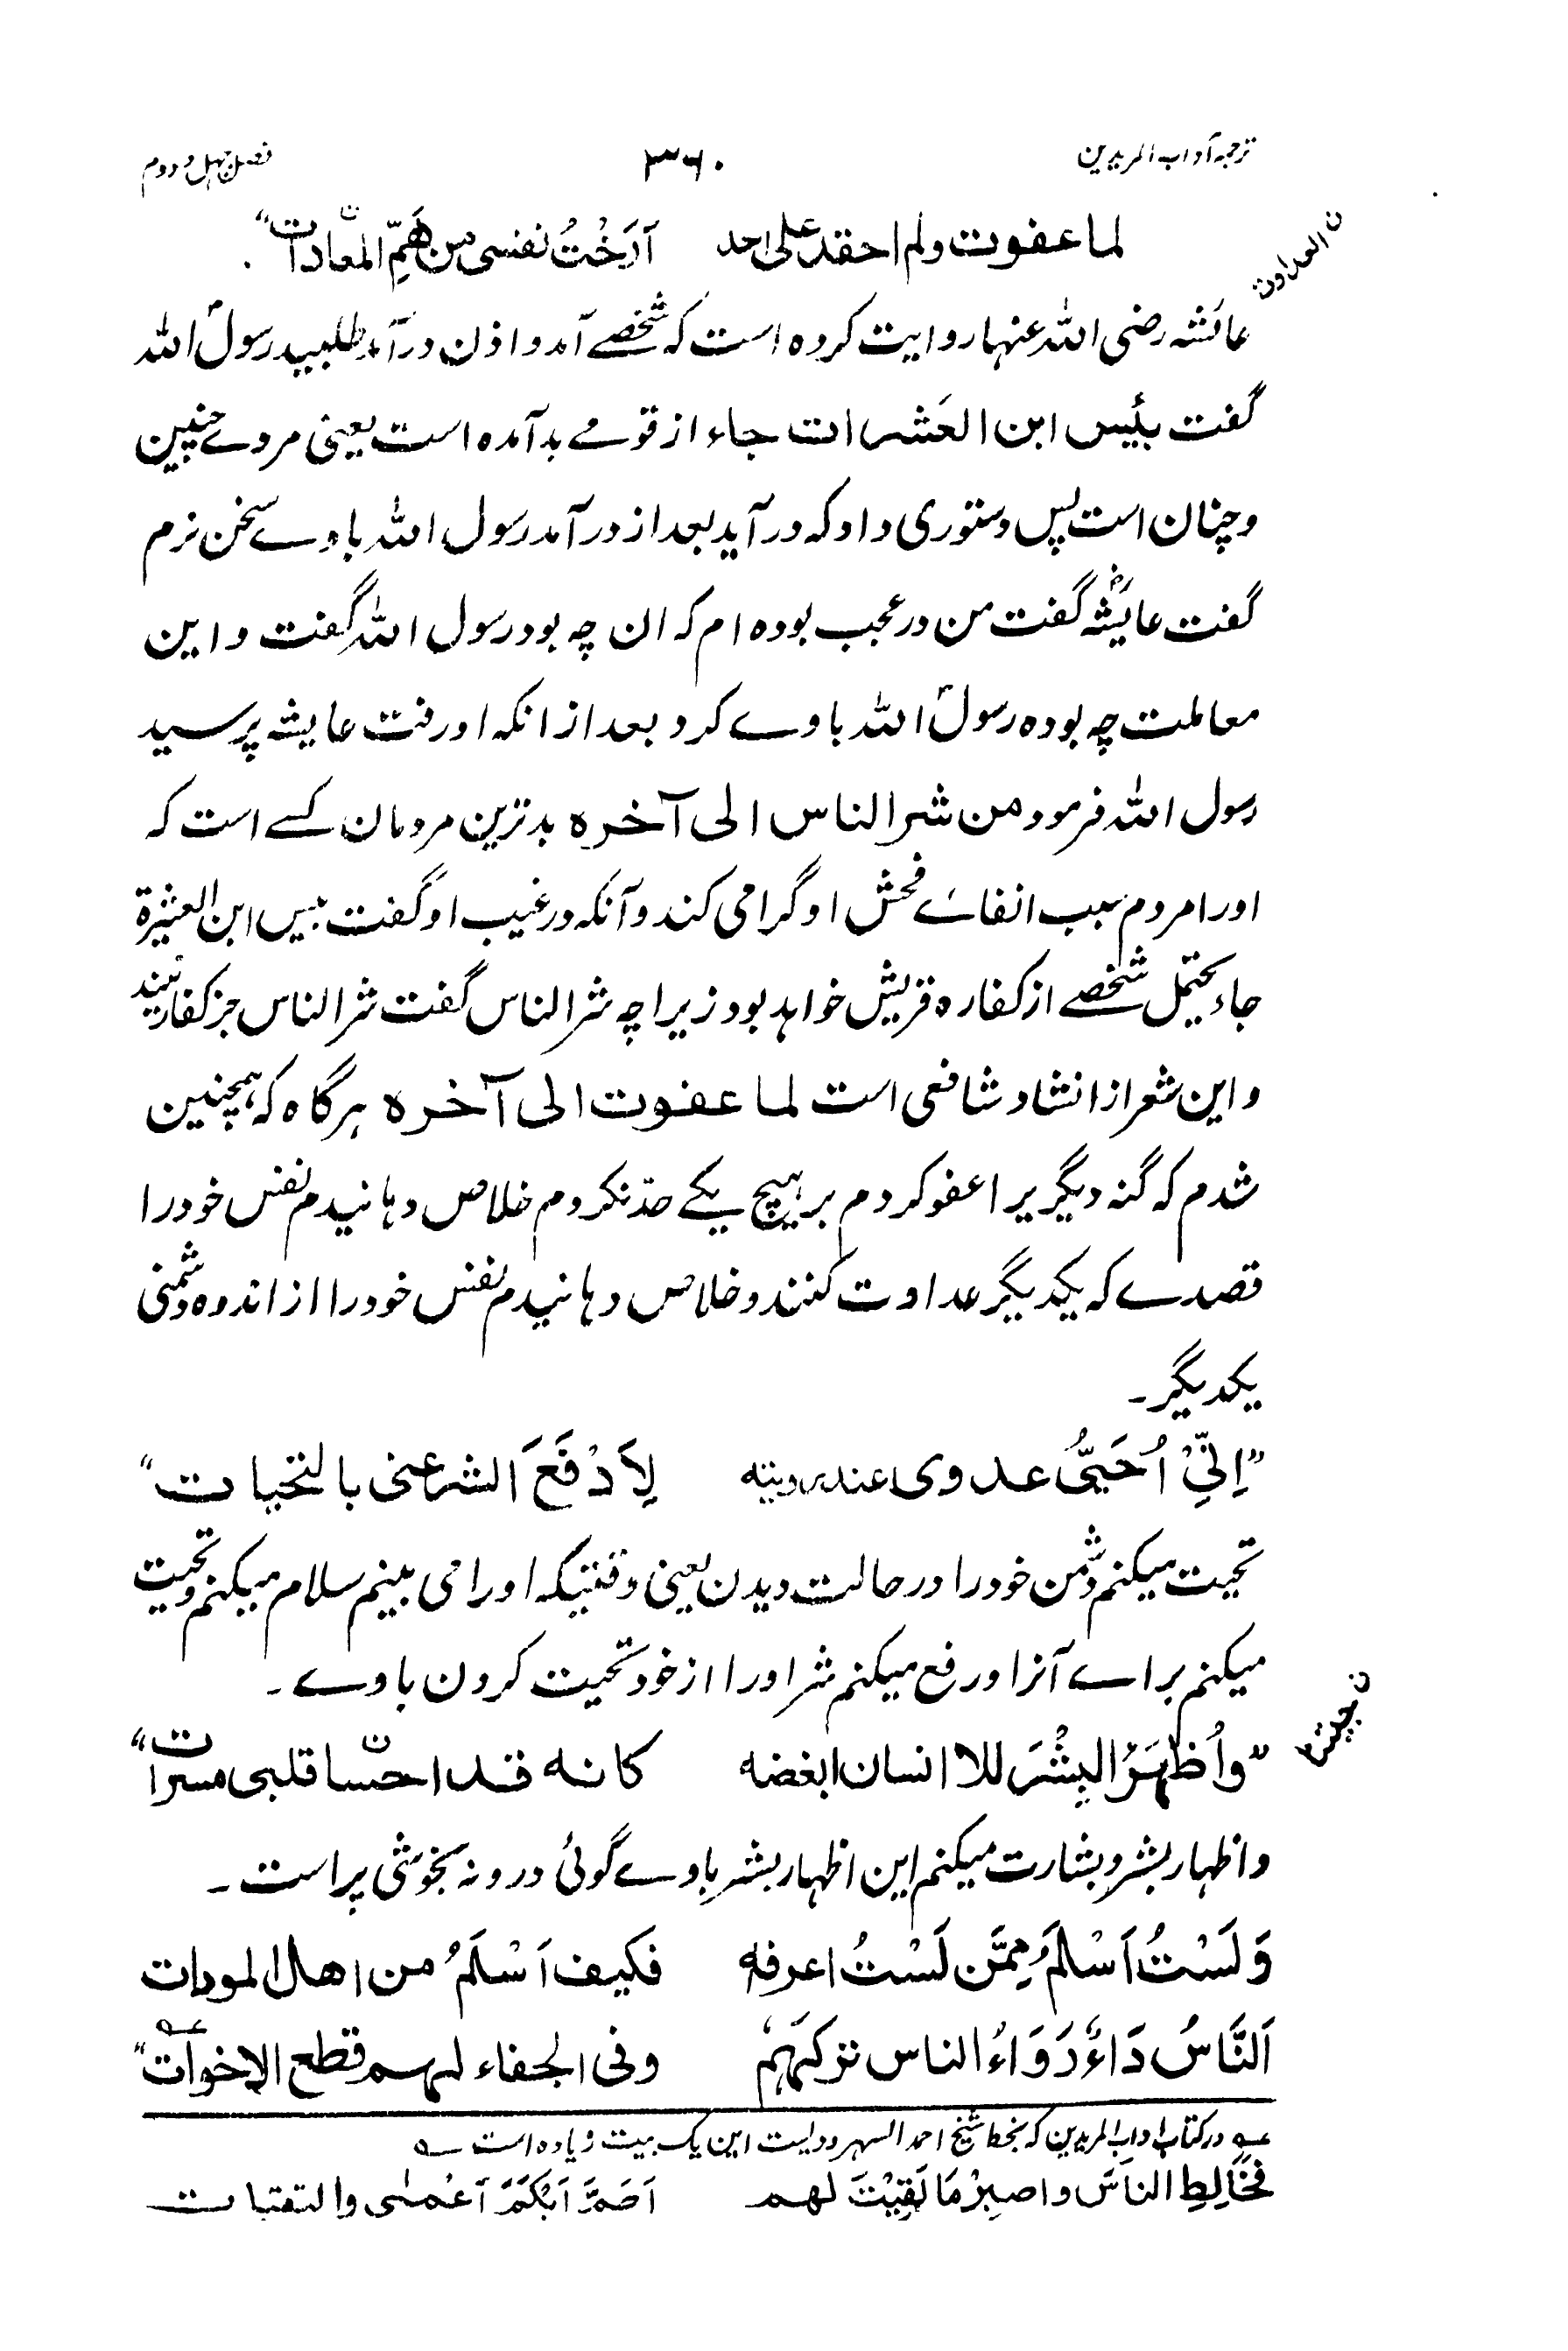 ترجمہ آداب المریدین ۳۶۰ فصل چہل و دوم
لما عفوت ولم احقد علی احد آرَحْتُ نفسی من هَمِّ المعادات"
ن العداوت
عائشہ رضی اللہ عنہا روایت کردہ است کہ شخصے آمد و اذن درآمد طلبید رسولؐ اللہ
گفت بئیس ابن العَشرات جاء از قومے بد آمدہ است یعنی مردے چنین
و چنان است پس دستوری داد کہ در آید بعد از درآمد رسول اللہ با وے سخن نرم
گفت عایشہؓ گفت من در عجب بودہ ام کہ ان چہ بود رسول اللہ گفت و این
معاملت چہ بودہ رسولؐ اللہ با وے کرد بعد از انکہ او رفت عایشہ پرسید
رسول اللہ فرمود من شر الناس الی آخرہ بدترین مردمان کسے است کہ
اورا مردم سبب اتقائے فحش او گرامی کند و آنکہ در غیب او گفت بیس ابن العشیرة
جاء یحتمل شخصے از کفارہ قریش خواہد بود زیراچہ شر الناس گفت شر الناس جز کفار نیند
و این شعر از انشاد شافعی است لما عفوت الی آخرہ ہرگاہ کہ ہمچنین
شدم کہ گنہ دیگریرا عفو کردم بر ہیچ یکے حقد نکردم خلاص دہانیدم نفس خود را
قصدے کہ یکدیگر عداوت کنند و خلاص دہانیدم نفس خود را از اندوہ دشمنی
یکدیگر ۔
"اِنِّیْ اُحَیُّ عدوی عند رویتہ لِاَدْفَعَ الشر عنی بالتحیات"
تحیت میکنم دشمن خود را در حالت دیدن یعنی وقتیکہ اورا می بینم سلام میکنم و تحیت
میکنم براے آنرا و رفع میکنم شر اورا از خود تحیت کردن با وے ۔
"واُظْهِرُ البِشْرَ للانسان ابغضه کانه قد احسا قلبی مسرات"
و اظہار بشر و بشارت میکنم این اظہار بشر با وے گوئی درونہ بخوشی پر است ۔
وَلَسْتُ اَسْلَمُ مِمَّن لَسْتُ اعرفه فکیف اَسْلَمُ من اهل المودات
اَلنَّاسُ دَاءٌ دَوَاءُ الناس ترکهم وفی الجفاء لهم قطع الاخوات"
عـہ در کتاب اداب المریدین کہ بخط شیخ احمد السہروردیست این یک بیت زیادہ است
فَخَالِطِ الناسَ واصبِرْ مَا لَقِیْتَ لهم اَصَمَّ اَبْکَمَ اَعْمٰی والتقیات